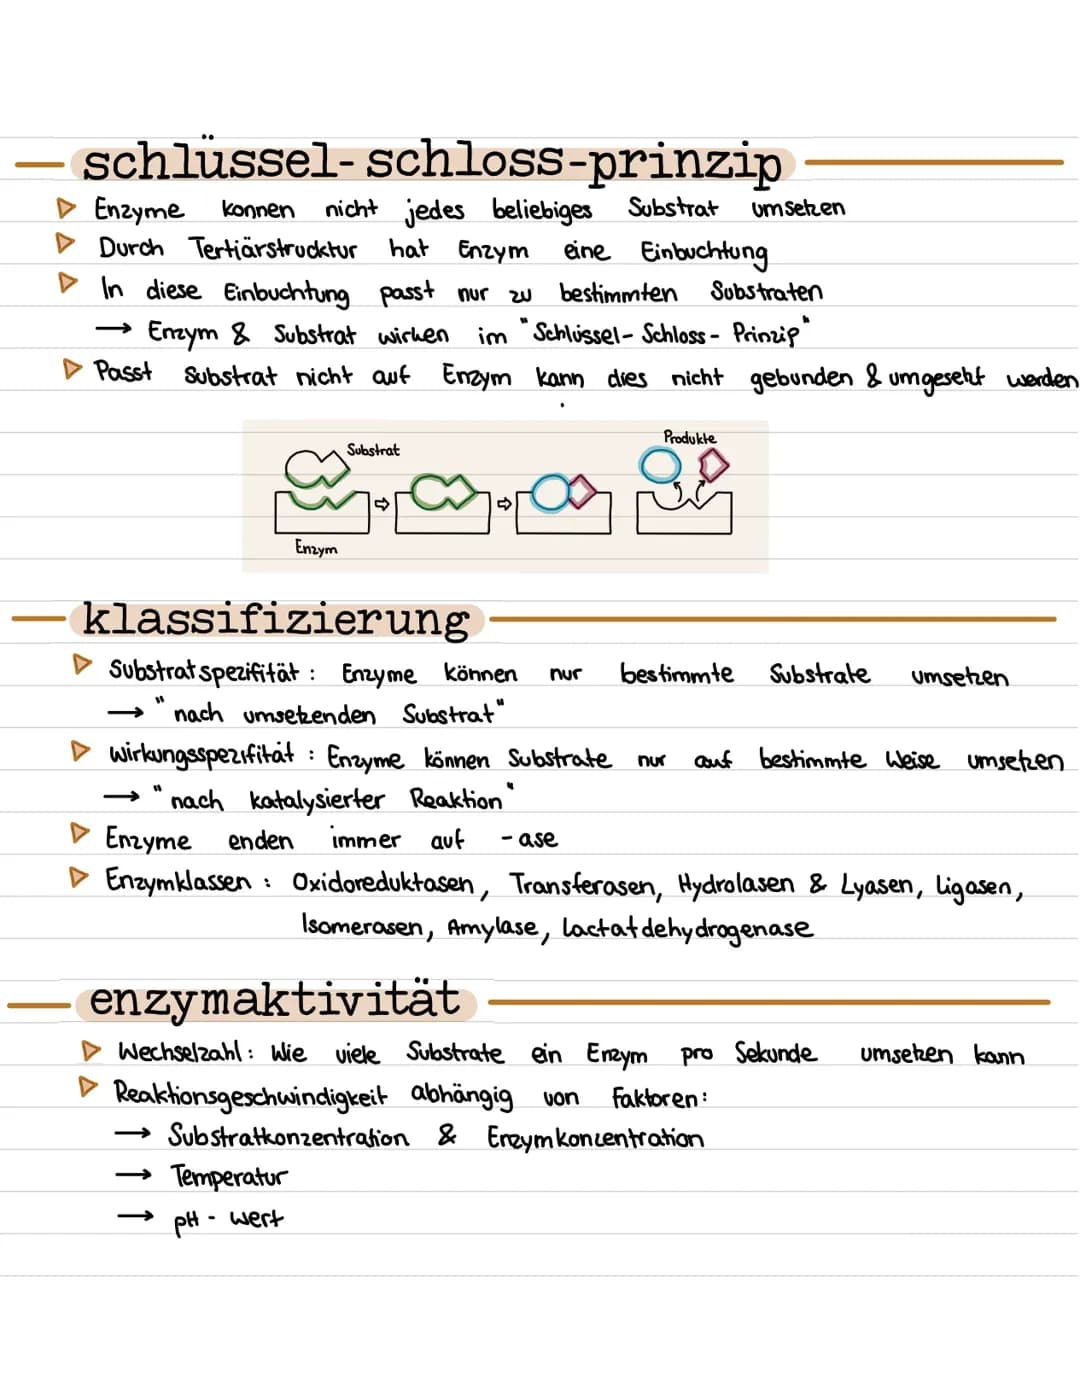 schlüssel-schloss-prinzip
Enzyme konnen nicht jedes beliebiges Substrat umsetzen
Durch Tertiärstrucktur hat Enzym eine Einbuchtung
In diese Einbuchtung passt nur zu bestimmten Substraten
→ Enzym & Substrat wirken im "Schlüssel-Schloss-Prinzip"
Passt Substrat nicht auf Enzym kann dies nicht gebunden & umgesetzt werden
Substrat
Produkte
Enzym
klassifizierung
Substratspezifität: Enzyme können nur bestimmte Substrate umsetzen
→ "nach umsetzenden Substrat"
Wirkungsspezifität: Enzyme können Substrate nur auf bestimmte Weise umsetzen
→ "nach katalysierter Reaktion"
Enzyme enden immer auf -ase
Enzymklassen: Oxidoreduktasen, Transferasen, Hydrolasen & Lyasen, Ligasen,
Isomerasen, Amylase, Lactatdehydrogenase
enzymaktivität
Wechselzahl: Wie viele Substrate ein Enzym pro Sekunde umsetzen kann
Reaktionsgeschwindigkeit abhängig von Faktoren:
→ Substratkonzentration & Enzymkonzentration
→ Temperatur
→ pH-wert